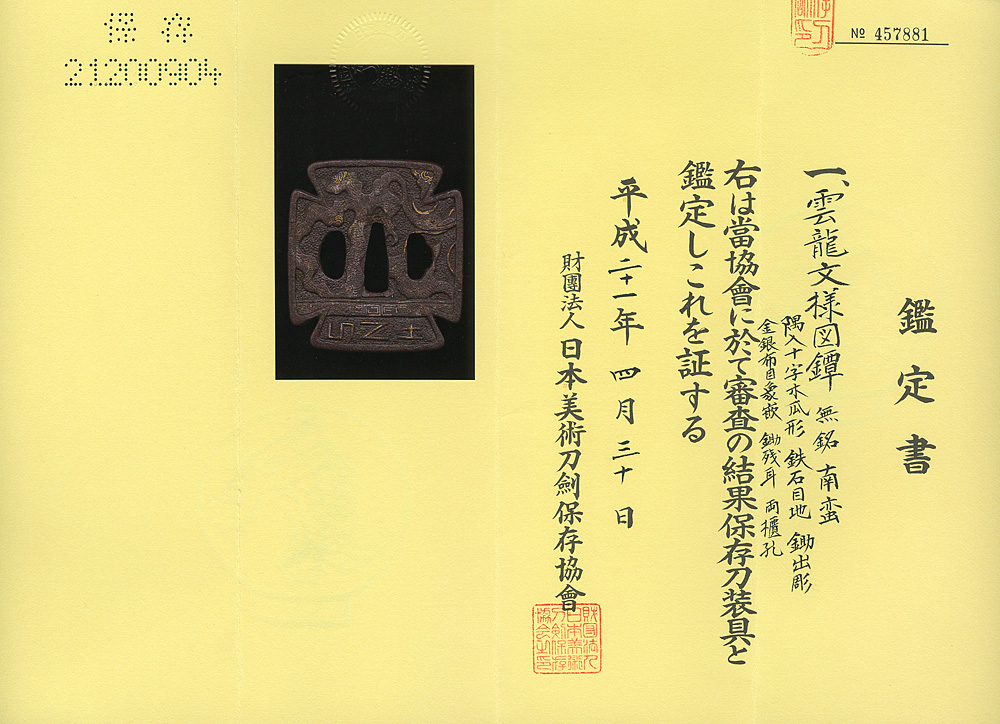 保存
21200904
№ 457881
鑑定書
一、雲龍文様図鐔 無銘 南蛮
隅入十字木瓜形 鉄石目地 鋤出彫
金銀布目象嵌 鋤残耳 両櫃孔
右は當協會に於て審査の結果保存刀装具と
鑑定しこれを証する
平成二十一年 四月三十日
財團法人 日本美術刀劍保存協會
財団法人
日本美術
刀剣保存
協会之印